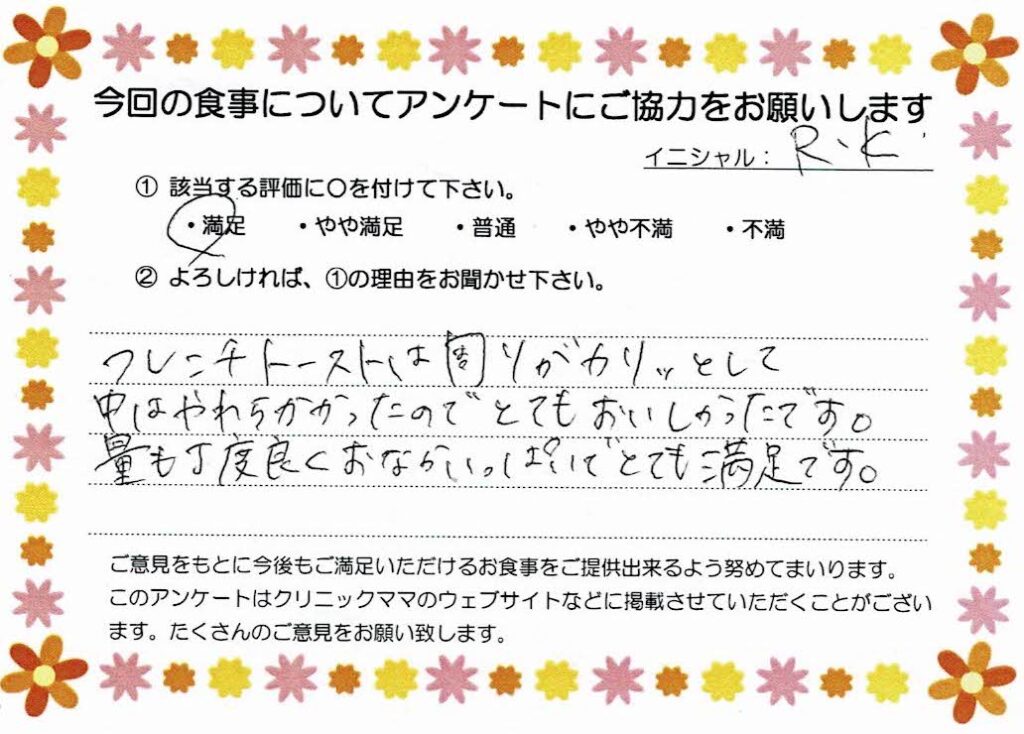 今回の食事についてアンケートにご協力をお願いします
イニシャル： R、K
① 該当する評価に〇を付けて下さい。
・満足 ・やや満足 ・普通 ・やや不満 ・不満
② よろしければ、①の理由をお聞かせ下さい。
フレンチトーストは周りがカリッとして
中はやわらかかったのでとてもおいしかったです。
量も丁度良くおなかいっぱいでとても満足です。
ご意見をもとに今後もご満足いただけるお食事をご提供出来るよう努めてまいります。
このアンケートはクリニックママのウェブサイトなどに掲載させていただくことがござい
ます。たくさんのご意見をお願い致します。